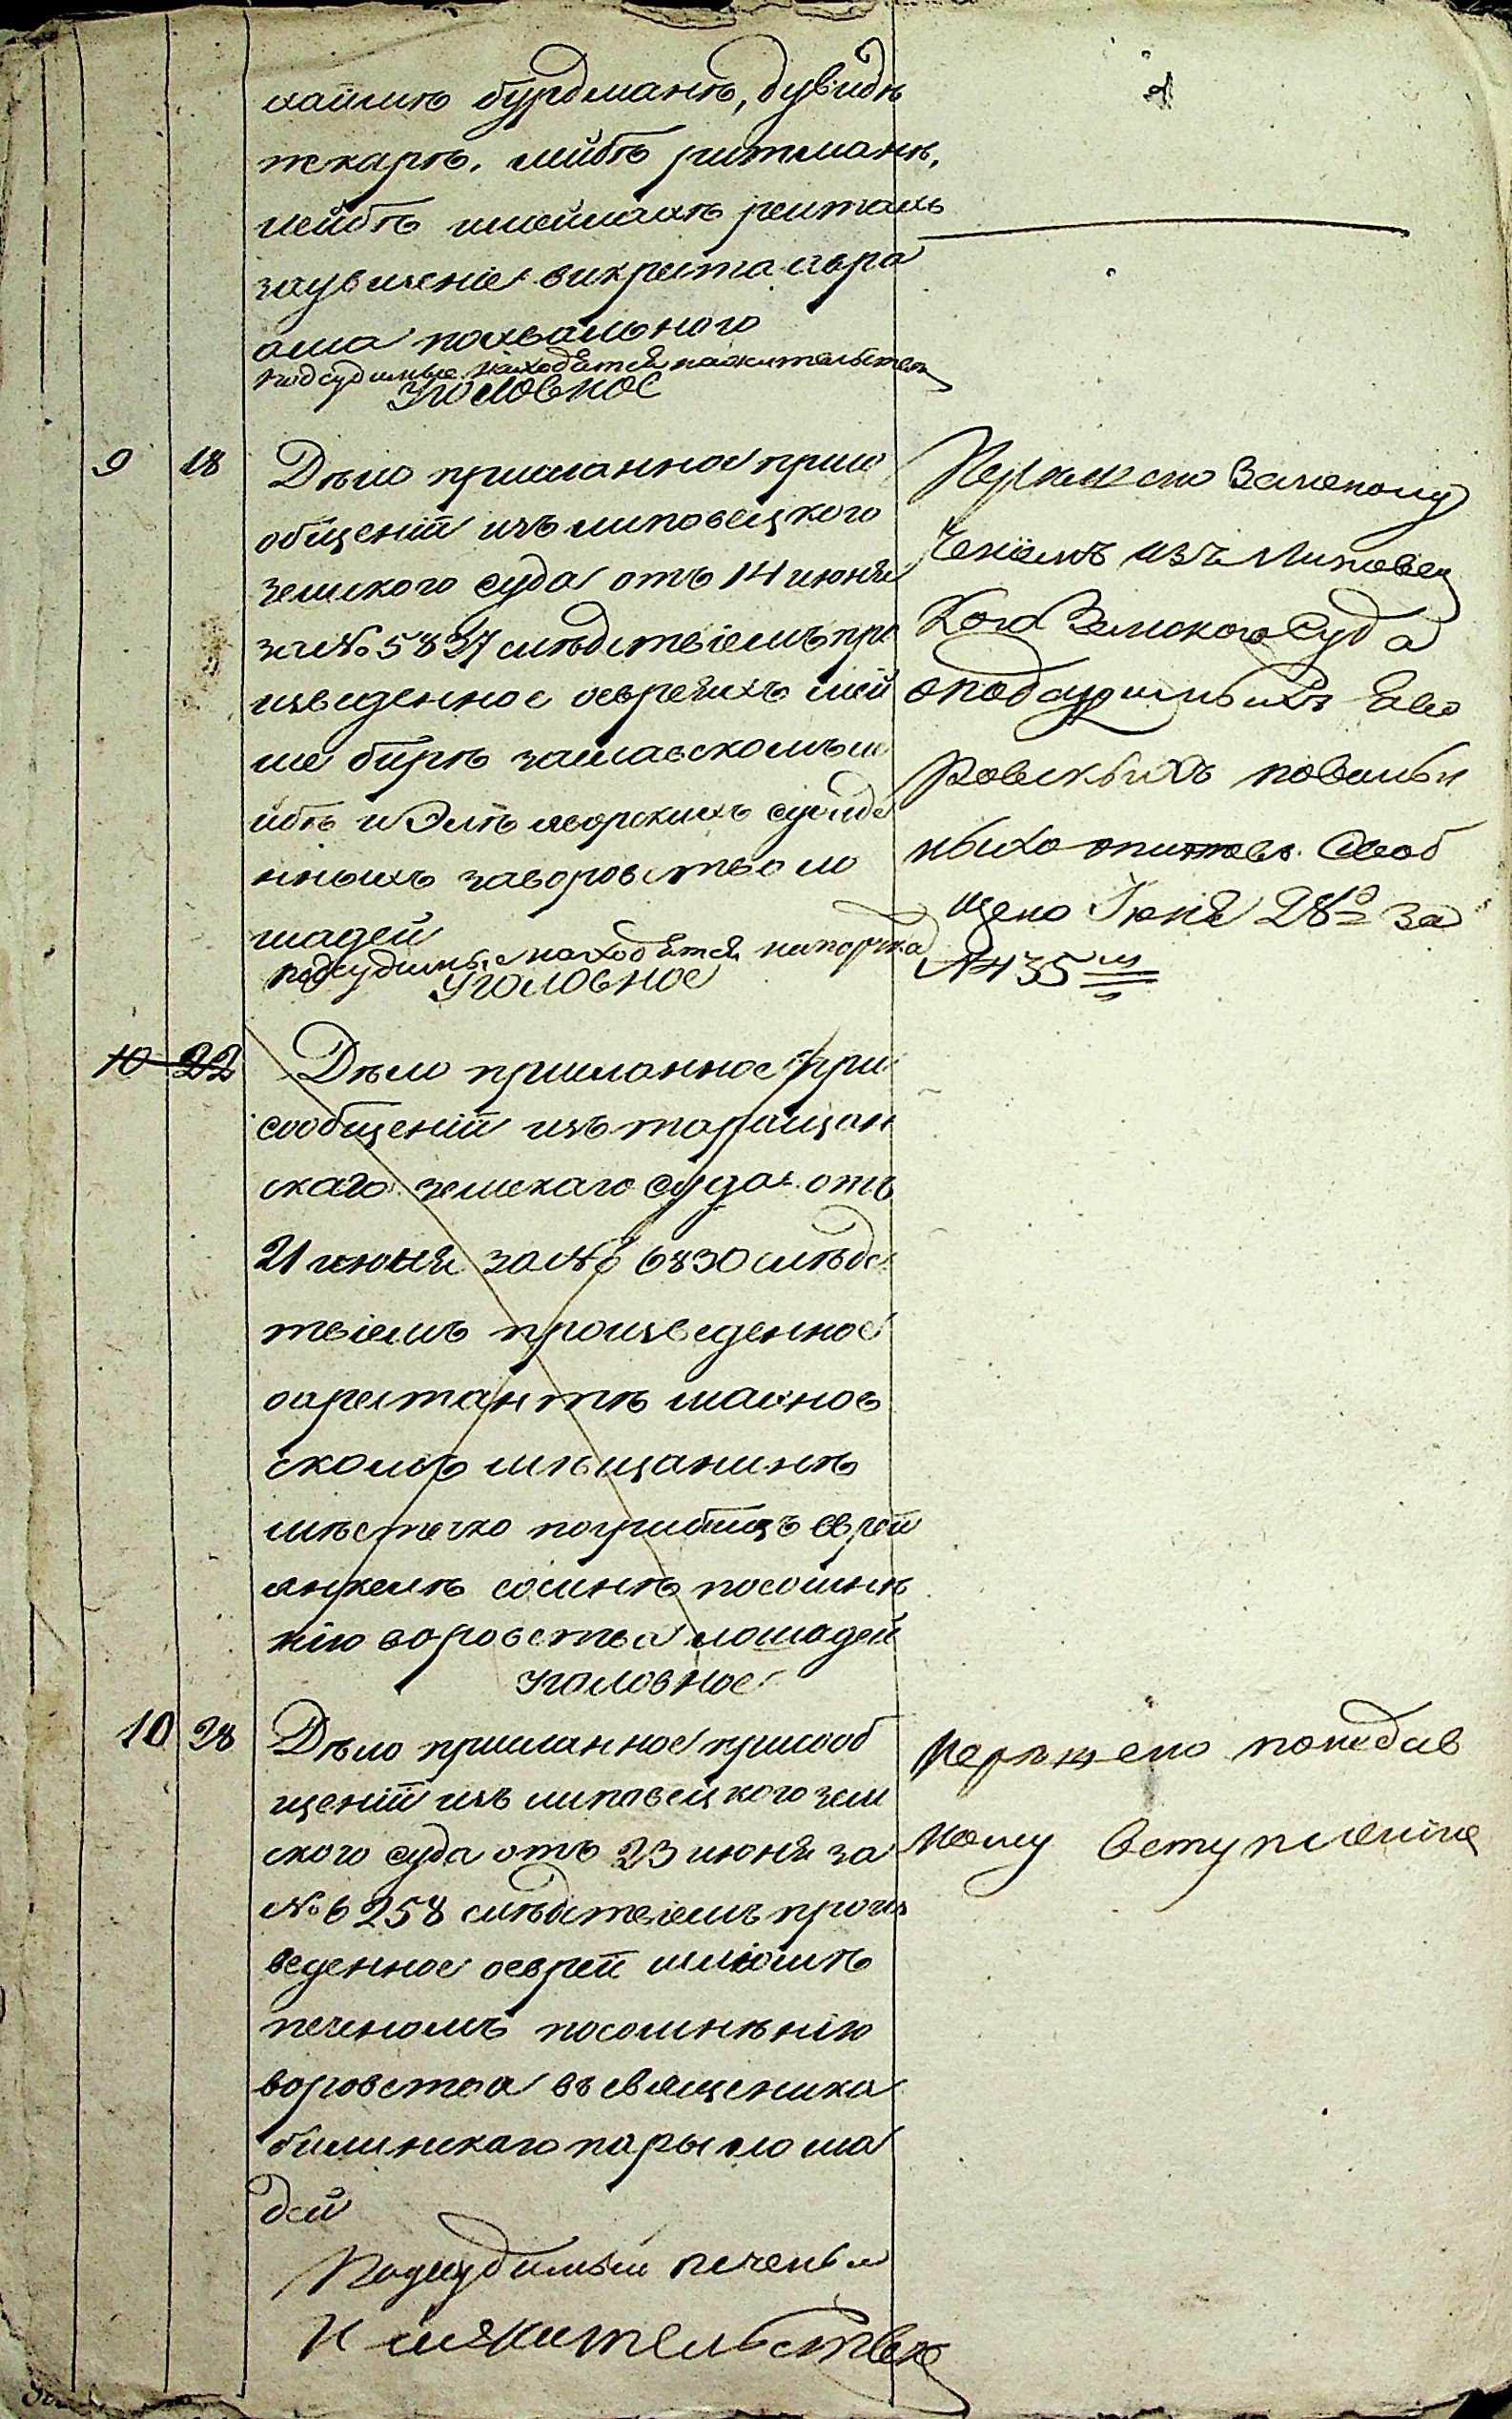 хаимъ бурдманъ, дувидъ
шкаръ, лейбъ ритманъ,
лейбъ
заувеченіе викреста абра
ама похвального
подсудимые находятся нажительствѣ
Уголовное
9 18 Дѣло присланное присо
общеніи изъ липовецкого
земского суда отъ 14 июня
за № 5827 слѣдствіемъ про
изведенное оевреяхъ лей
зе бирѣ заславскомъ ле
йбѣ и Элѣ яворскихъ сужде
нныхъ заворовство ло
шадей
подсудимые находятся напорука
Уголовное
Нерѣшено Занеполу
ченіемъ изъ Липовец
Кого Земского Суда
оподсудимыхъ Яво
ровскихъ повальн
ныхъ Сооб
щено Іюня 28го за
№ 435м
10 22 Дѣло присланное при
сообщеніи изъ таращан
скаго земскаго суда отъ
21 июня за № 6830 слѣдс
твіемъ произведенное
оарестантѣ махнов
скомъ мѣщанинѣ
мѣстечко погребищъ еврей
янкелѣ сосинѣ посомнѣ
нію воровства лошадей
Уголовное
10 28 Дѣло присланное присооб
щеніи изъ липовецкого зем
ского суда отъ 23 июня за
№ 6258 слѣдствіемъ произ
веденное оеврей шлюмѣ
печеномъ посомнѣнію
воровства въ священика
билинскаго пары лоша
дей
Подсудимый печеный
на жительствѣ
Нерѣшено понедав
ному вступленію